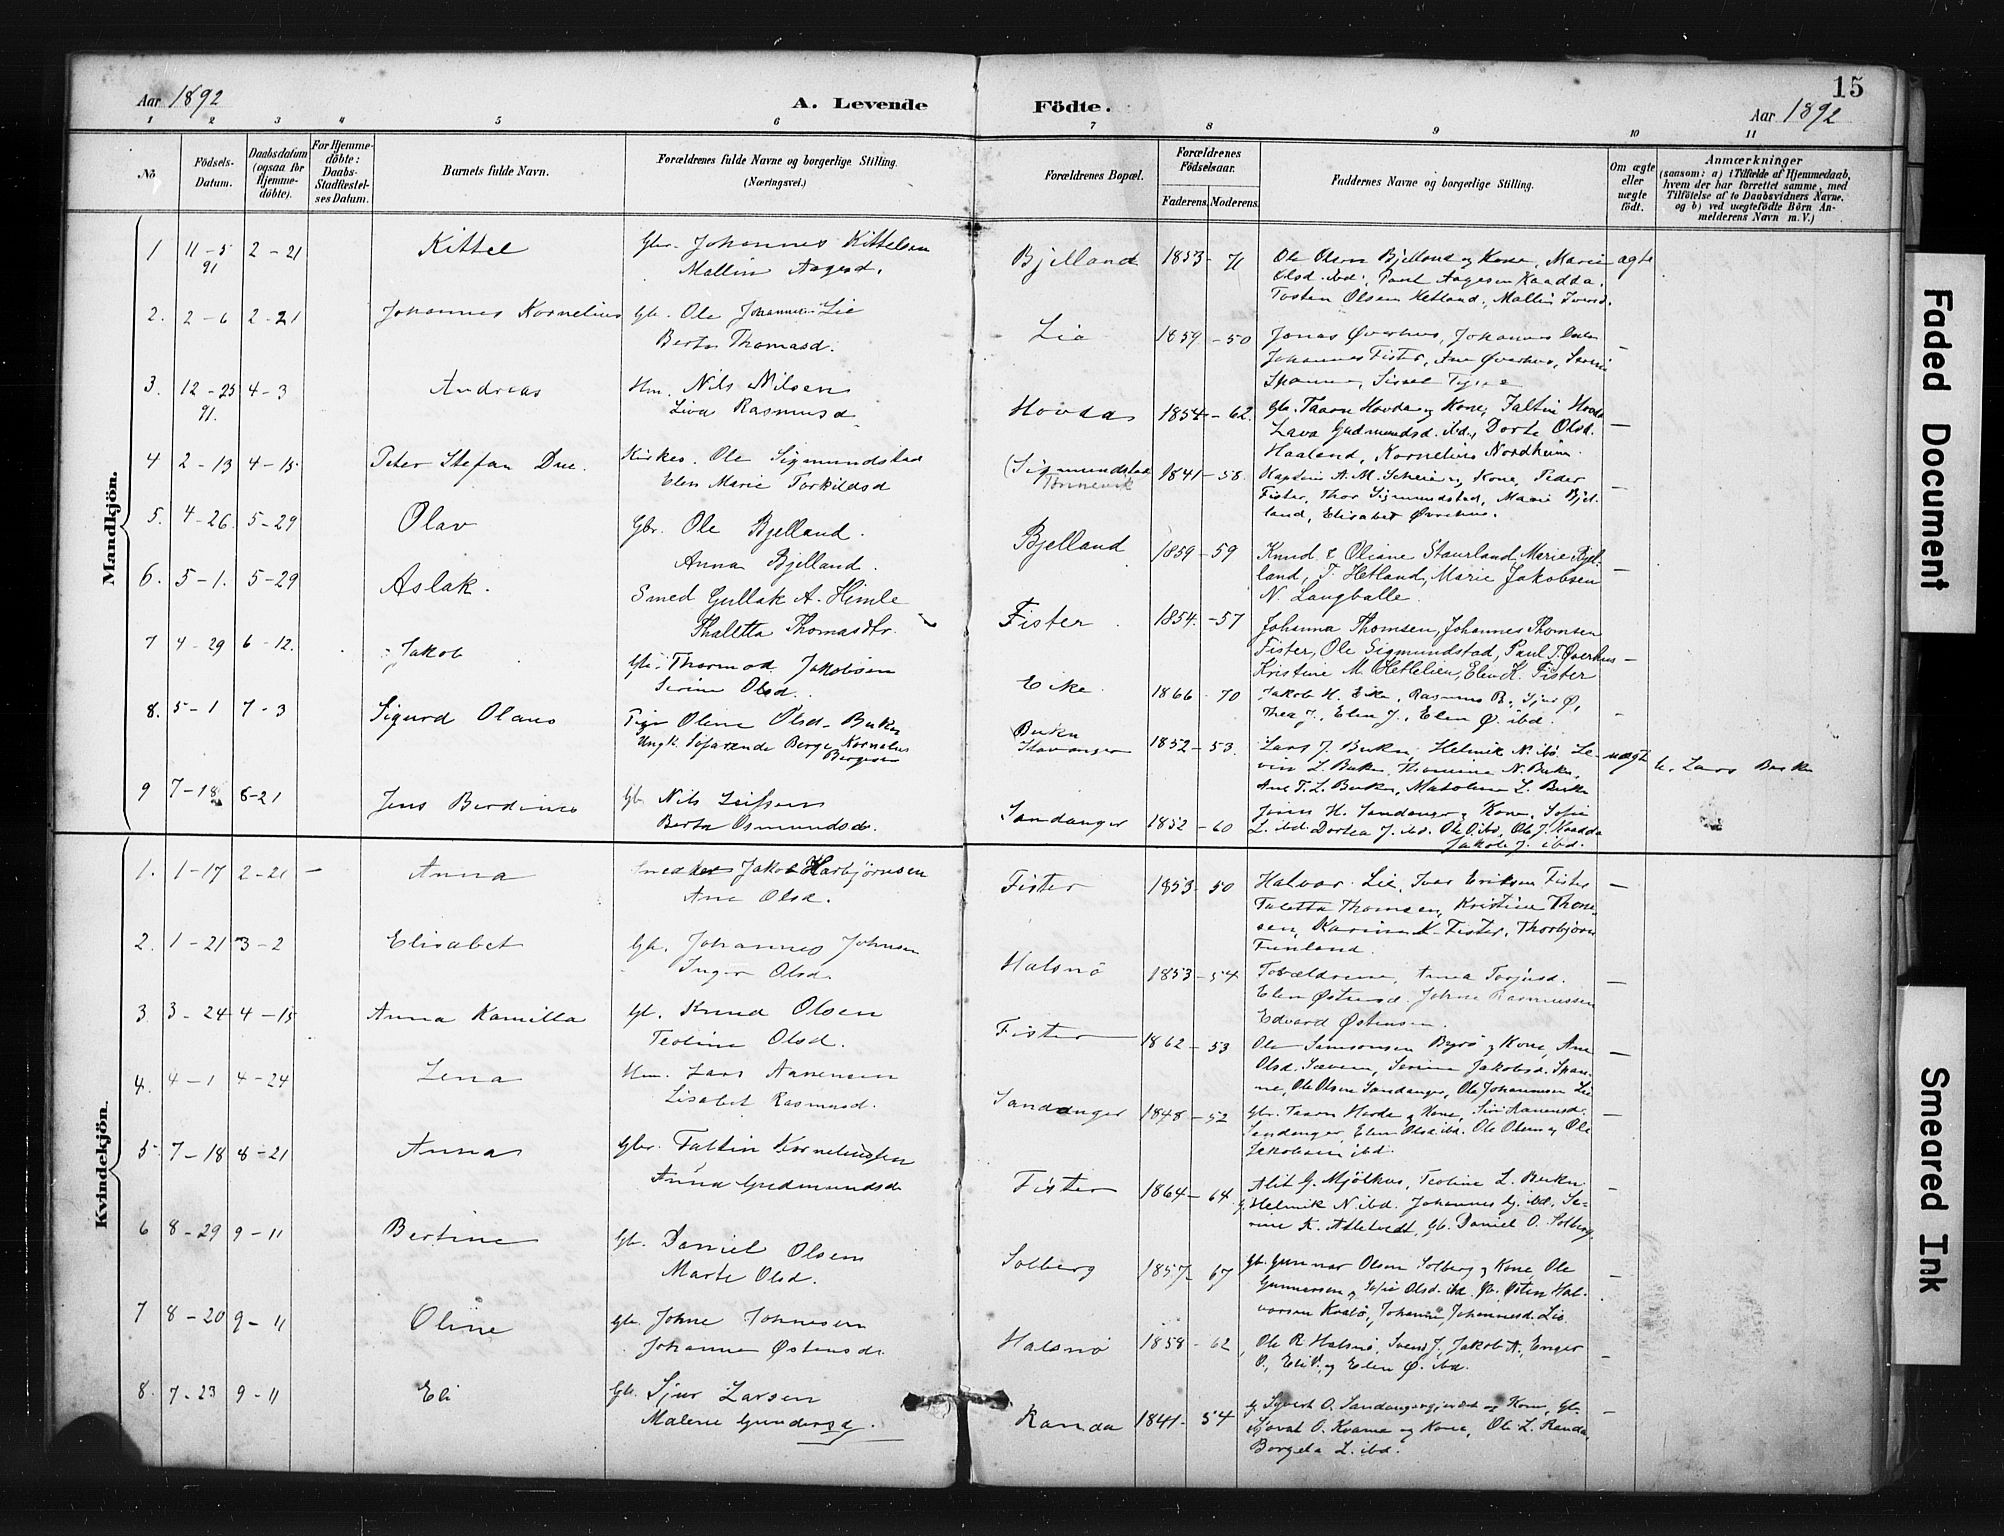 15
Aar 1892
A. Levende Födte.
Aar 1892
1 2 3 4 5 6 7 8 9 10 11
No
Födsels-Datum.
Daabsdatum (ogsaa for Hjemmedöbte).
For Hjemmedöbte: Daabs-Stadfæstelses Datum.
Barnets fulde Navn.
Forældrenes fulde Navne og borgerlige Stilling. (Næringsvei.)
Forældrenes Bopæl.
Forældrenes Födselsaar.
Faderens. Moderens.
Faddernes Navne og borgerlige Stilling.
Om ægte eller uægte födt.
Anmærkninger
(saasom: a) i Tilfælde af Hjemmedaab, hvem der har forrettet samme, med Tilföielse af to Daabsvidners Navne, og b) ved uægtefödte Börn Anmelderens Navn m. V.)
Mandkjön.
1 11-5 91 2-21 Kittel Gbr. Johannes Kittelsen
Mallin Aagesd.
Bjelland 1853-71 Ole Olsen Bjelland og Kone, Marie ægte
Olsd. ibd., Paul Aagesen Kaadda,
Tosten Olsen Hetland, Mallin Iversd.
2. 2-6 2-21 Johannes Kornelius Gbr. Ole Johannesen Lie
Berta Thomasd.
Lie 1859-50 Jonas Øverhus, Johannes
Johannes Fister, Ane Øverhus,
3. 12-25 91. 4-3 Andreas Hm. Nils Nilsen
Liva Rasmusd.
Hovda 1854-62. Gbr. Taarn Hovda og Kone, Faltin Hovda
Lava Gudmundsd. ibd., Dorte Olsd.
Haaland, Kornelius Nordheim.
4 2-13 4-15 Peter Stefan Due. Kirkes. Ole Sigmundstad
Elen Marie Torkildsd
(Sigmundstad 1841-58. Kaptein A. M. Scheie og Kone, Peder
Fister, Thor Sigmundstad, Marie Bjelland, Elisabet Øvrehus.
5. 4-26. 5-29 Olav Gbr. Ole Bjelland.
Anna Bjelland.
Bjelland 1859-59 Knud & Oliane Staurland, Marie Bjelland, T. Hetland, Marie Jakobsen
N. Langballe.
6. 5-1. 5-29 Aslak. Smed Gullak A. Himle
Thaletta Thomasdtr.
Fister 1854-57 Johanna Thomsen, Johannes Thomsen
Fister, Ole Sigmundstad, Paul T. Øverhus
Kristine M. Hettelien, Elen K. Fister
7 4-29 6-12. Jakob Gbr. Thormod Jakobsen
Serine Olsd.
Eike 1866-70 Jakob H. Eike, Rasmus R., Sjur Ø,
Thea J., Elen J., Elen Ø. ibd.
8. 5-1 7-3 Sigurd Olaus Pige Oline Olsd. Burkn
Ungk. Söfarende Berge Kornelius
Bergesen
Stavanger 1852-53. Lars J. Burkn, Helmik N. ibd, uægte Lars
L. Burkn, Thomine N. Burkn,
Ane T. L. Burkn, Matoline L. Burkn
9 7-18 8-21 Jens Berdines Gb. Nils Leifsen
Berta Osmundsd.
Sandanger 1852-60 H. Sandanger og Kone, Sofie
L. ibd. Dortea J. ibd. Ole O. ibd, Ole J. Kaadda
Jakob J. ibd.
Kvindekjön.
1. 1-17 2-21 Anna Jakob Harbjörnsen
Ane Olsd.
Fister 1853-50 Halvor Lie, Ivar Eriksen Fister
Taletta Thomsen, Kristine Thomsen, Karine K. Fister, Thorbjörn
Funland.
2. 1-21 3-2 Elisabet Gb. Johannes Johnsen
Inger Olsd.
Halsnö 1853-54 Forældrene, Anna Torjusd.
Elen Østensd. Johne Rasmussen
Edvard Østensen.
3 3-24 4-15 Anna Kamilla Gb. Knud Olsen
Teoline Olsd.
Fister 1862-53 Ole Samsonsen Byrö og Kone, Ane
Olsd. Serine Jakobsd.
Ole Olsen Sandanger, Ole Johannesen Lie
4. 4-1 4-24 Lena Hm. Lars Aanensen
Lisabet Rasmusd.
Sandanger 1848-52 Gbr. Taarn Hovda og Kone, Siri Aanensd.
Sandanger, Elen Olsd. ibd. Ole Olsen og Ole
Jakobsen ibd.
5 7-18 8-21 Anna Gbr. Faltin Korneliussen
Anna Gudmundsd.
Fister 1864-64 Alit G. Mjölhus, Teoline L. Burkn
Helmik N. ibd. Johannes G. ibd.
K. Attletvedt, Gb. Daniel O. Solberg
6 8-29 9-11 Bertine Gb. Daniel Olsen
Marte Olsd.
Solberg 1857-67 Gb. Gunnar Olsen Solberg og Kone Ole
Gunnarsen og Sofie Olsd. ibd. Gb. Østen Halvorsen Kvalö, Johanne Johannesd. Lie
7 8-20 9-11 Oline Gb. Johne Johnesen
Johanne Østensd.
Halsnö 1858-62 Ole R. Halsnö, Svend J., Jakob A., Enger
O., Eli O. og Elen Ø. ibd.
8. 7-23 9-11 Eli Gb. Sjur Larsen
Malene Gundersd.
Randa 1841-54 Sjvert O. Sandangergjerdet og Kone, Gb.
O. Kvame og Kone, Ole L. Randa,
Borgela L. ibd.
Faded Document
Smeared Ink